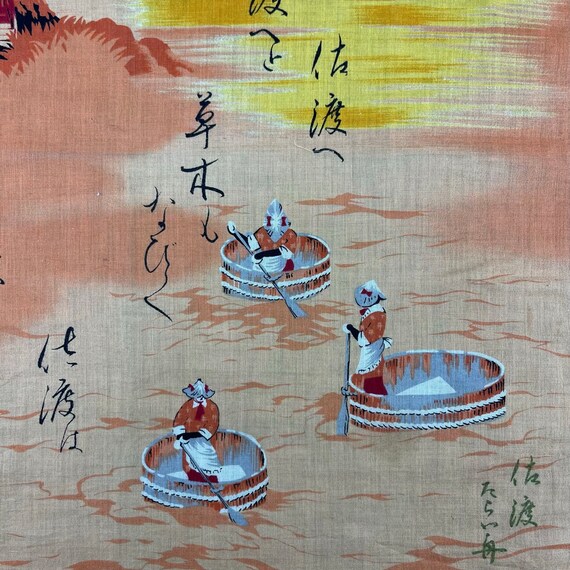 佐渡へ
渡へと
草木も
なびく
佐渡は
佐渡
たらい舟